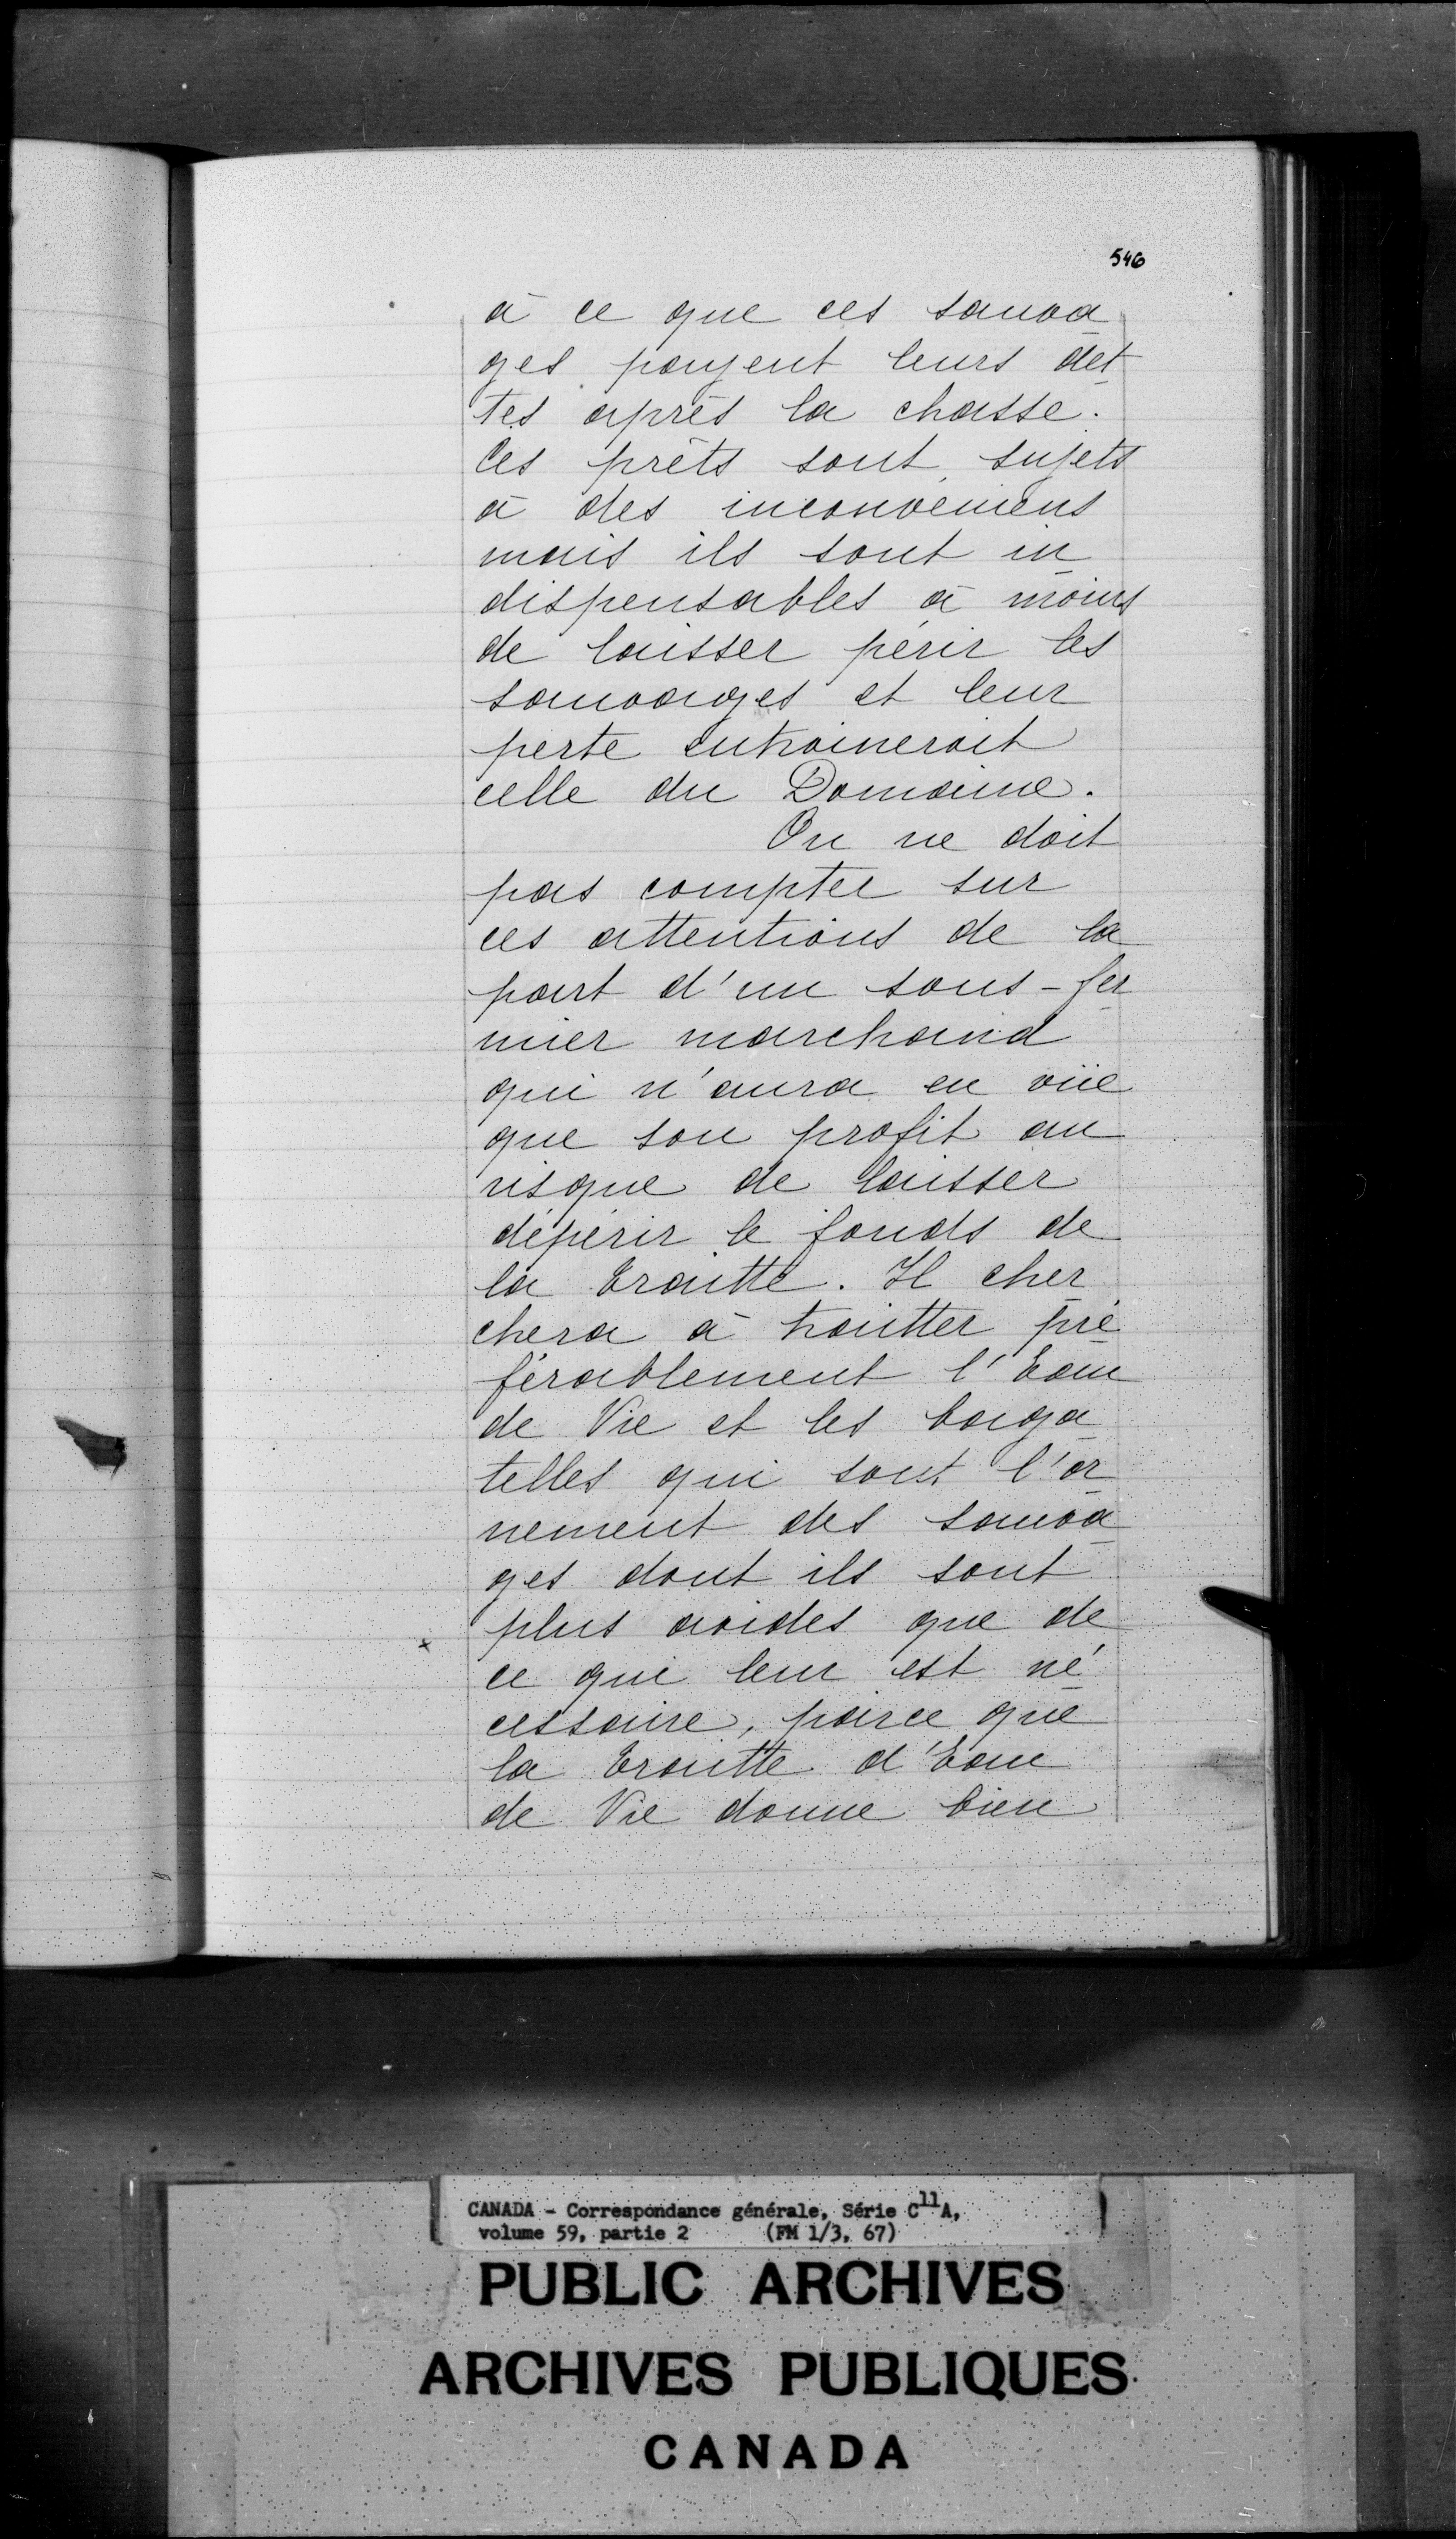 546
à ce que ces sauva
ges payent leurs det
tes après la chasse.
Ces prêts sont sujets
à des inconvéniens
mais ils sont in
dispensables à moins
de laisser périr les
sauvages et leur
perte entraineroit
celle du Domaine.
On ne doit
pas compter sur
ces attentions de la
part d'un sous-fer
mier marchand
qui n'aura en vüe
que son profit au
risque de laisser
dépérir le fonds de
la traitte. Il cher
chera à traitter pré
férablement l'Eau
de Vie et les baga
telles qui sont l'or
nement des sauva
ges dont ils sont
plus avides que de
x
ce qui leur est né
cessaire, parce que
la traitte d'Eau
de Vie donne bien
CANADA - Correspondance générale, Série C11A,
volume 59, partie 2 (FM 1/3, 67)
PUBLIC ARCHIVES
ARCHIVES PUBLIQUES
CANADA